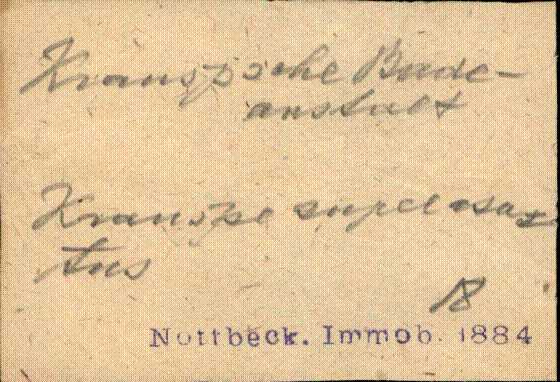 Krauspsche Bade-
anstalt
Krauspe supelasa-
tus
18
Nottbeck. Immob. 1884